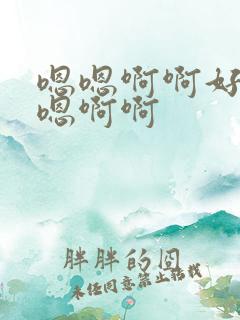 嗯嗯啊啊好
嗯啊啊
胖胖的囧
未经同意禁止转载